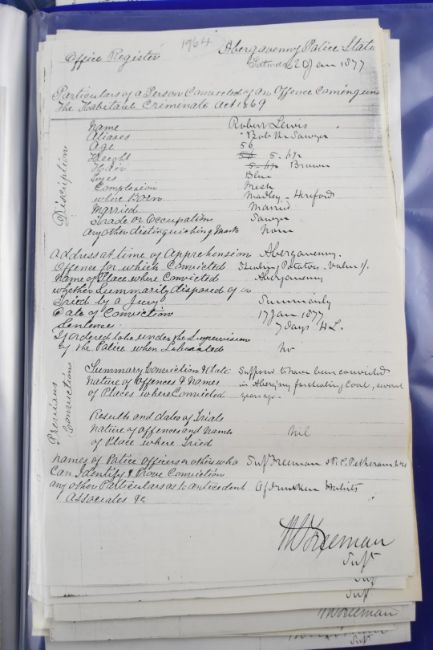 1964
Office Register
Abergavenny Police Stat
20 Jan 1877
Particulars of a Person Convicted of an Offence coming in
The Habitual Criminals Act 1869
Discription
Name Robert Lewis
Aliases "Bob the Sawyer
Age 56
Height 5.
Hair Brown
Eyes Blue
Complexion Fresh
where Born Madley - Herford
Married Married
Trade or Occupation Sawyer
any other distinguishing Marks None
Address at time of Apprehension Abergavenny
Offence for which Convicted Stealing Potatoes. Value 1/.
Name of Place where Convicted Abergavenny
whether Summarily disposed of or
Tried by a Jury Summarily
Date of Conviction 17 Jan 1877
Sentence 7 days H.L.
If ordered to be under the Supervision
of the Police when Liberated No
Previous Convictions
Summary Conviction & Date Supposed to have been convicted
Nature of Offences & Names in Aberg'ny for stealing Coal, several
of Places where Convicted years ago
Results and dates of Trials
Nature of offences and Names Nil
of Place where Tried
Names of Police Officers or others who Supt Freeman & P.C.
Can Identify & Prove Conviction
any other Particulars as to antecedent Of drunken Habits
Associates &c
Freeman
Supt
Supt
Supt
Freeman
Supt